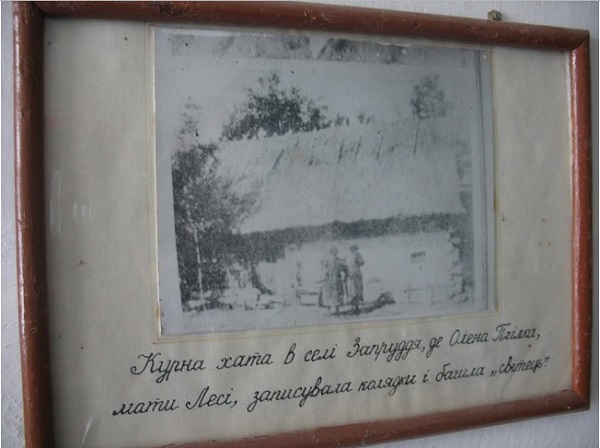 Курна хата в селі Запруддя, де Олена Пчілка,
мати Лесі, записувала колядки і бачила „світець".